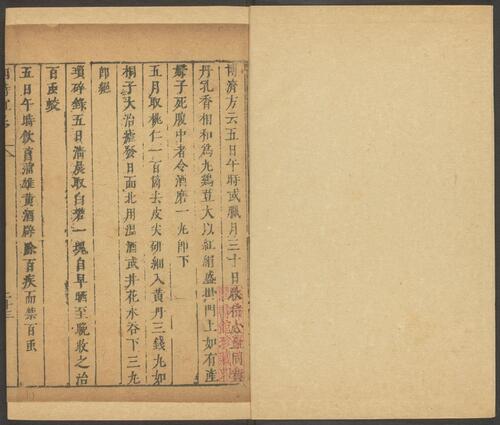 濟方云五日午時或臘月三十日
丹乳香相和為丸雞豆大以紅絹盛掛門上如有產
難子死腹中者令酒磨一丸卽下
五月取桃仁一百箇去皮尖研細入黃丹三錢丸如
桐子大治瘧發日面北用溫酒或井花水吞下三丸
卽絕
瑣碎錄五日清晨取白礬一塊自早晒至晚收之治
百虫蛟
五日午時飲菖蒲雄黃酒辟除百疾而禁百虫